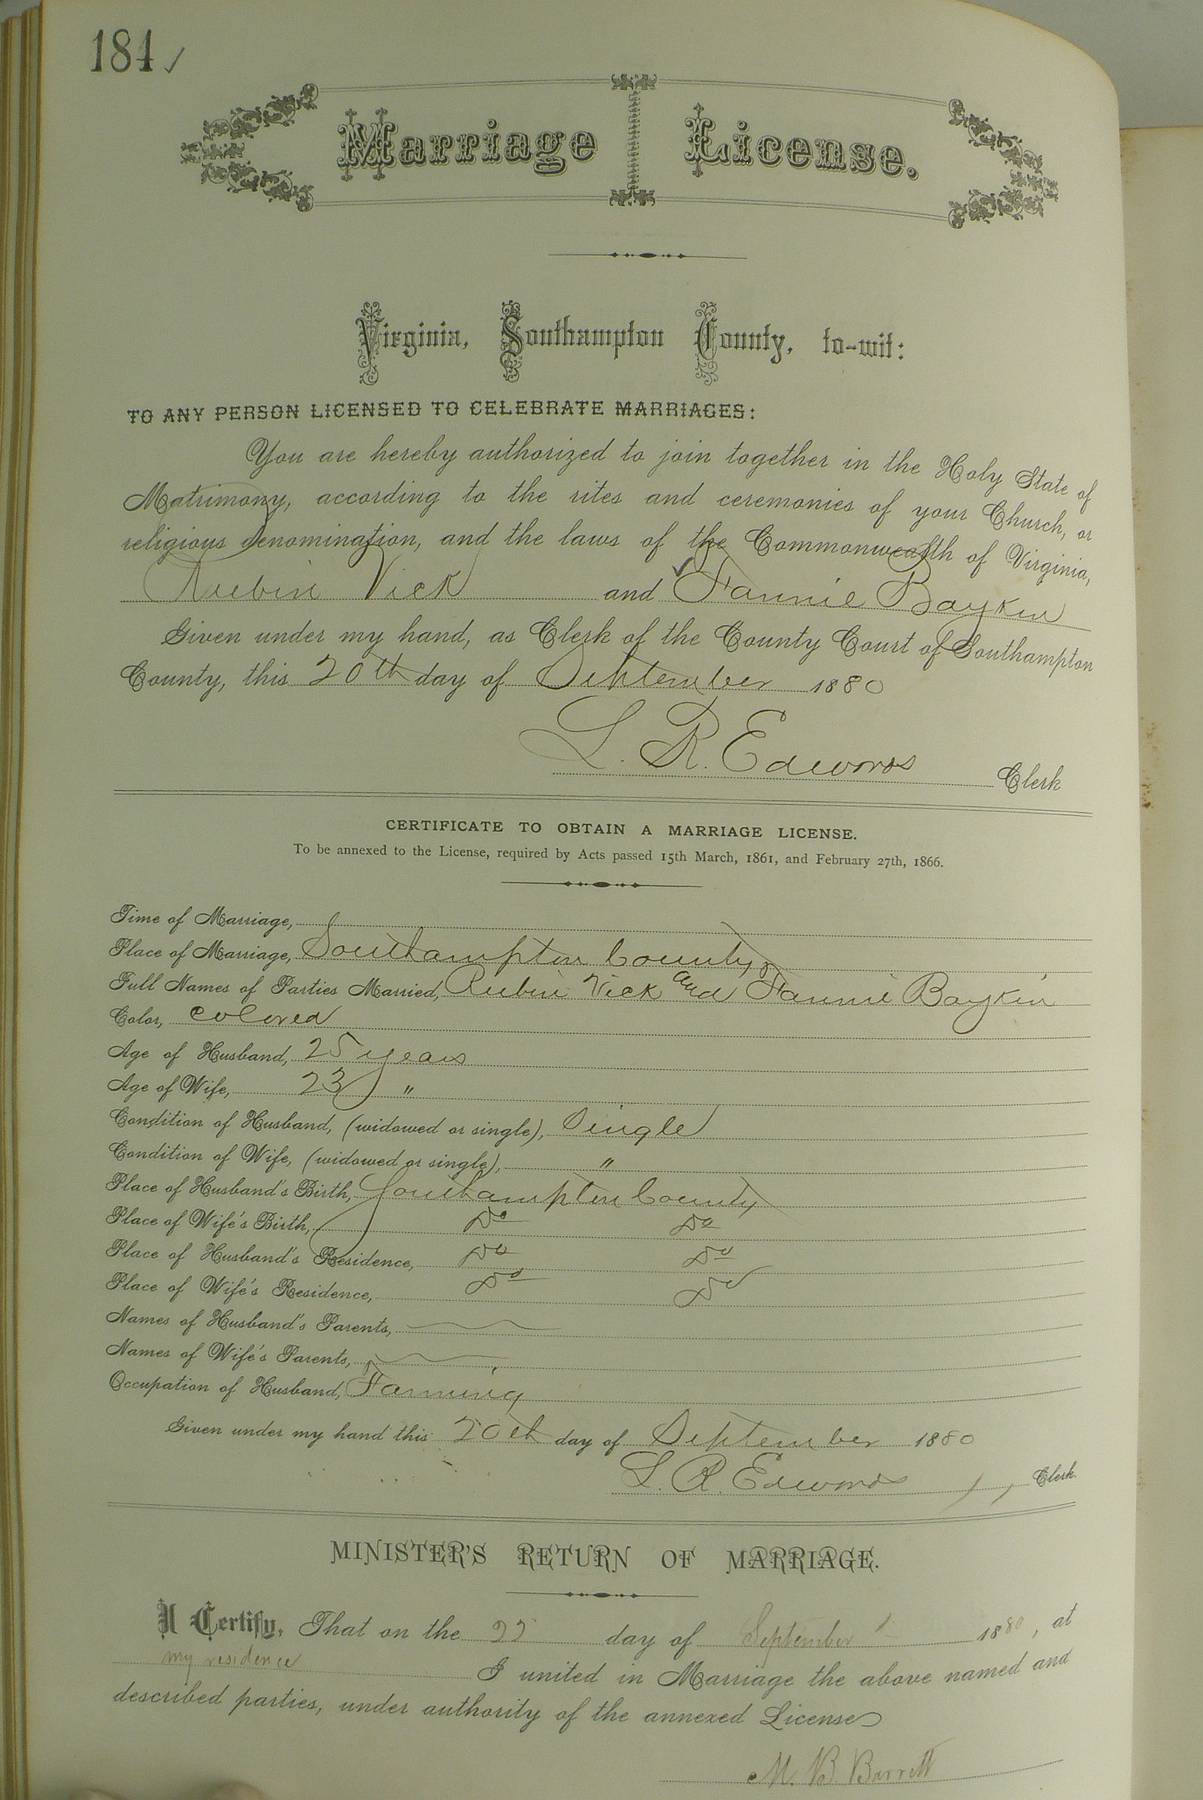 184 ✓
Marriage License.
Virginia, Southampton County, to-wit:
TO ANY PERSON LICENSED TO CELEBRATE MARRIAGES:
You are hereby authorized to join together in the Holy State of
Matrimony, according to the rites and ceremonies of your Church, or
religious denomination, and the laws of the Commonwealth of Virginia,
Rubin Vick and ✓ Fannie Baykin
Given under my hand, as Clerk of the County Court of Southampton
County, this 20th day of September 1880
L. R. Edwards Clerk
CERTIFICATE TO OBTAIN A MARRIAGE LICENSE.
To be annexed to the License, required by Acts passed 15th March, 1861, and February 27th, 1866.
Time of Marriage,
Place of Marriage, Southampton County
Full Names of Parties Married, Rubin Vick and Fannie Baykin
Color, colored
Age of Husband, 25 years
Age of Wife, 23 "
Condition of Husband, (widowed or single), Single
Condition of Wife, (widowed or single), "
Place of Husband's Birth, Southampton County
Place of Wife's Birth, Do Do
Place of Husband's Residence, Do Do
Place of Wife's Residence, Do Do
Names of Husband's Parents,
Names of Wife's Parents,
Occupation of Husband, Farming
Given under my hand this 20th day of September 1880
L. R. Edwards Clerk.
MINISTER'S RETURN OF MARRIAGE.
I Certify, That on the 22 day of September 1880, at
my residence I united in Marriage the above named and
described parties, under authority of the annexed License
M. B. Barrett